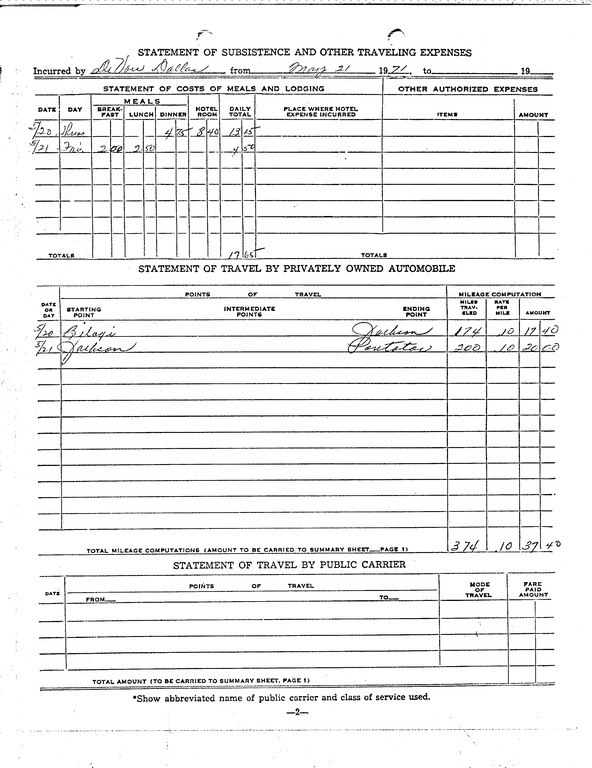 STATEMENT OF SUBSISTENCE AND OTHER TRAVELING EXPENSES
Incurred by DeVore Dallas from May 21 1971, to 19
STATEMENT OF COSTS OF MEALS AND LODGING OTHER AUTHORIZED EXPENSES
DATE DAY MEALS BREAK-FAST LUNCH DINNER HOTEL ROOM DAILY TOTAL PLACE WHERE HOTEL EXPENSE INCURRED ITEMS AMOUNT
5/20 Thurs 4 75 8 40 13 15
5/21 Fri 2 00 2 50 4 50
TOTALS 17 65 TOTALS
STATEMENT OF TRAVEL BY PRIVATELY OWNED AUTOMOBILE
DATE OR DAY POINTS OF TRAVEL STARTING POINT INTERMEDIATE POINTS ENDING POINT MILEAGE COMPUTATION MILES TRAV-ELED RATE PER MILE AMOUNT
5/20 Biloxi Jackson 174 .10 17 40
5/21 Jackson Pontotoc 200 .10 20 00
TOTAL MILEAGE COMPUTATIONS (AMOUNT TO BE CARRIED TO SUMMARY SHEET PAGE 1) 374 .10 37 40
STATEMENT OF TRAVEL BY PUBLIC CARRIER
DATE POINTS OF TRAVEL FROM TO MODE OF TRAVEL FARE PAID AMOUNT
TOTAL AMOUNT (TO BE CARRIED TO SUMMARY SHEET, PAGE 1)
*Show abbreviated name of public carrier and class of service used.
—2—